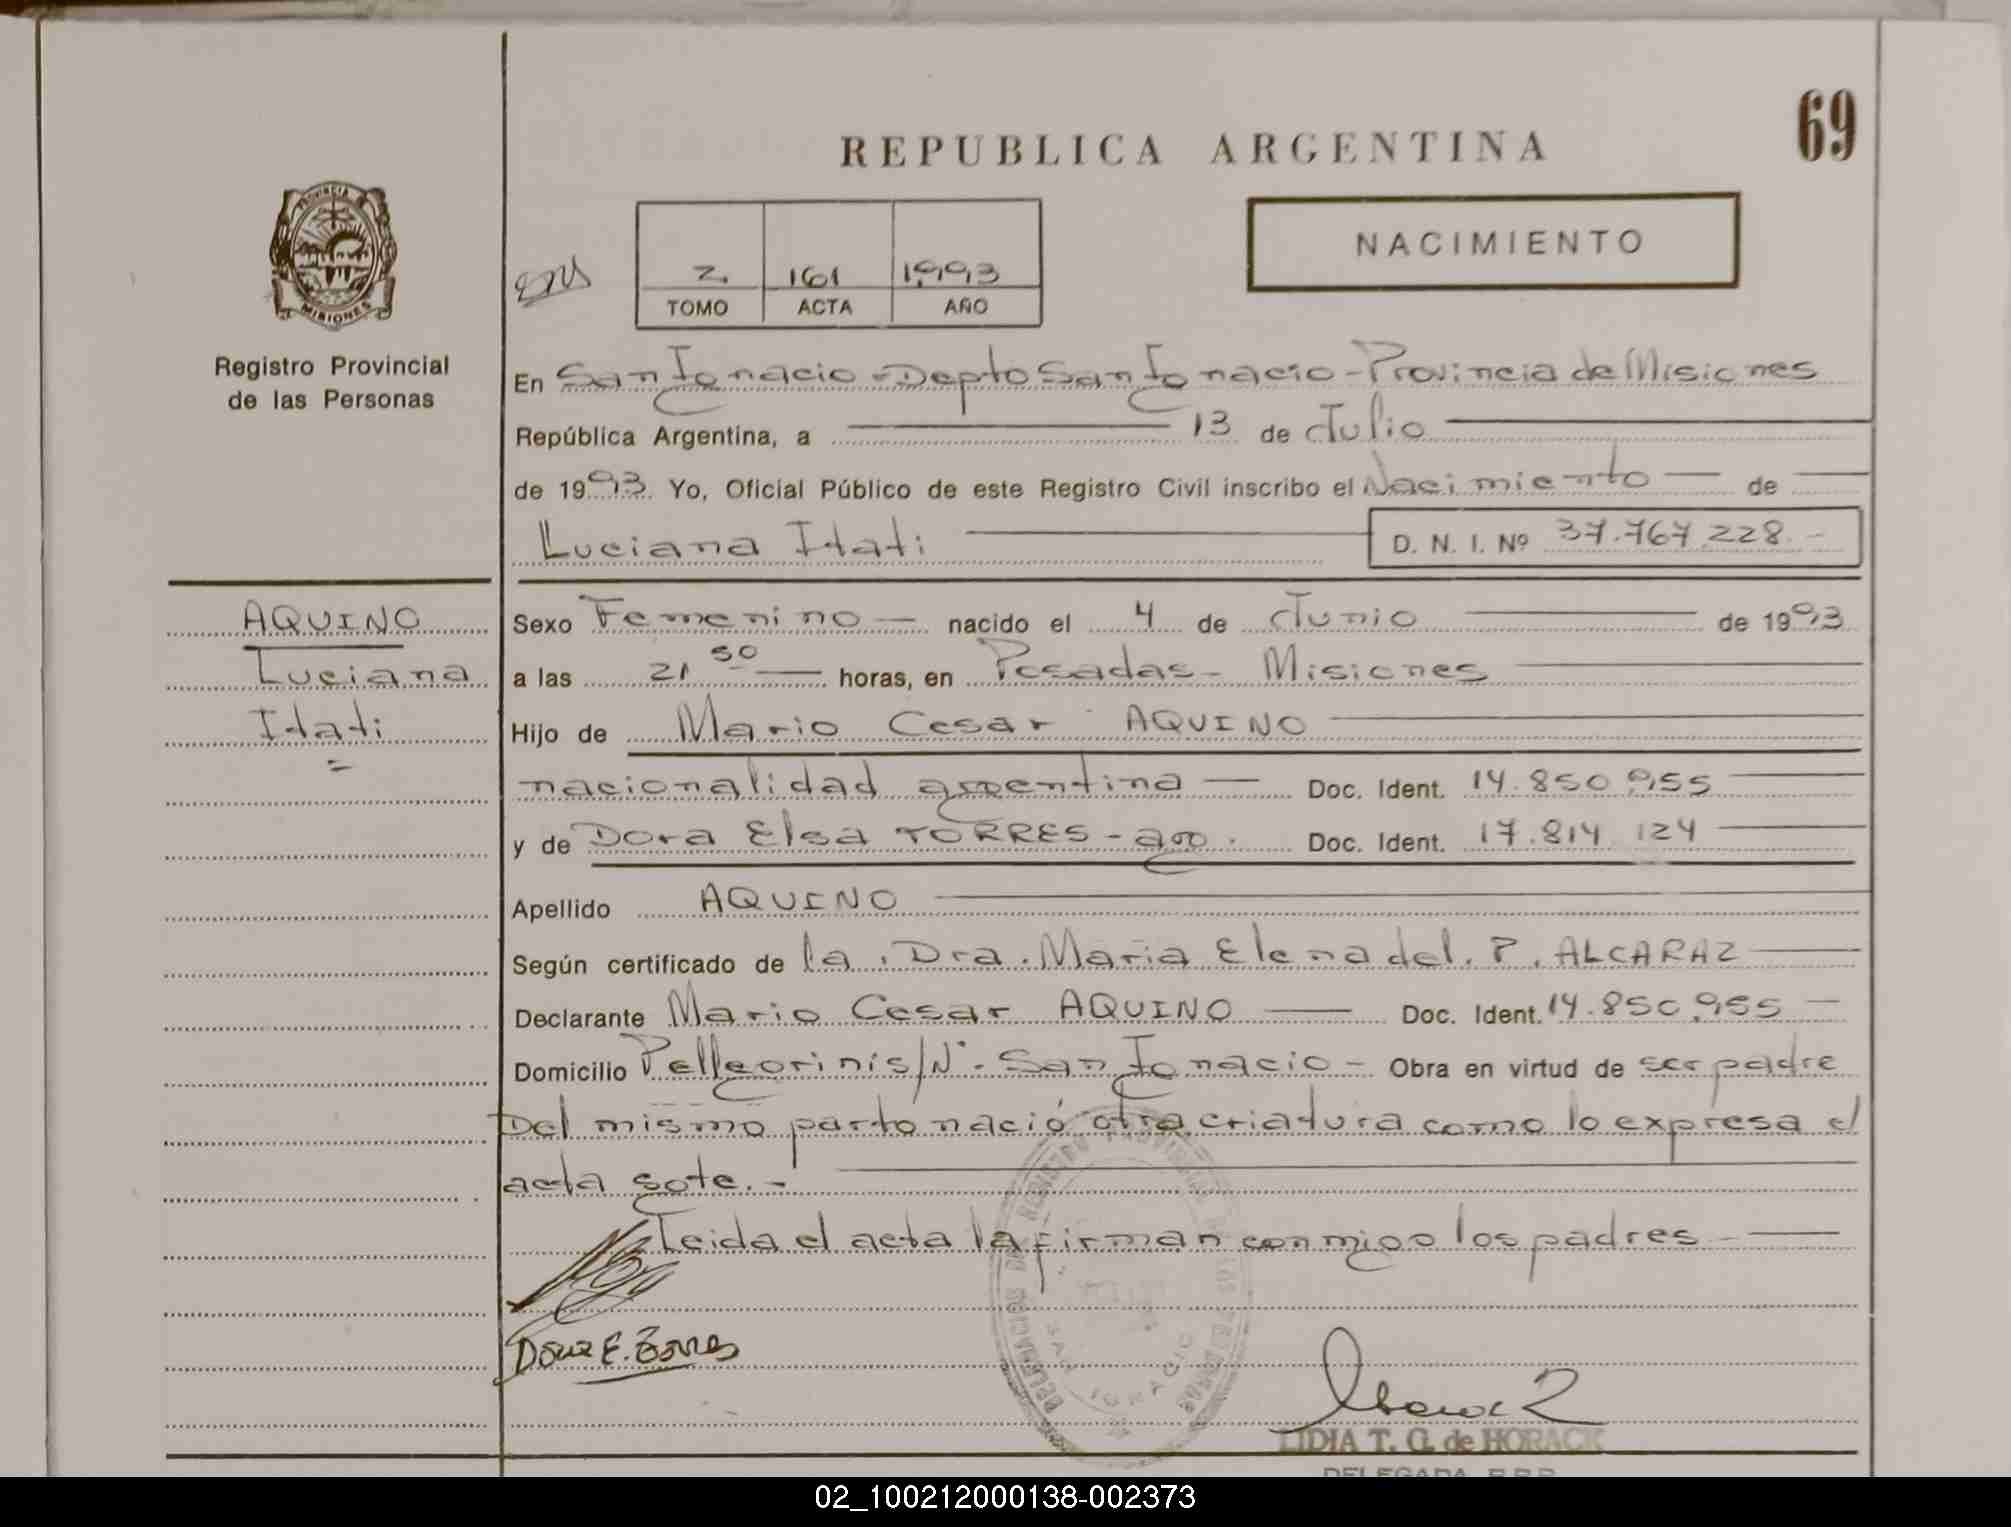 69
REPUBLICA ARGENTINA
NACIMIENTO
PROVINCIA DE
MISIONES
Registro Provincial
de las Personas
2. 161 1993
TOMO ACTA AÑO
En San Ignacio - Depto San Ignacio - Provincia de Misiones
República Argentina, a 13 de Julio
de 1993. Yo, Oficial Público de este Registro Civil inscribo el Nacimiento de
Luciana Itati D. N. I. Nº 37.767.228.-
AQUINO
Luciana
Itati
Sexo Femenino nacido el 4 de Junio de 1993
a las 21 50 horas, en Posadas - Misiones
Hijo de Mario Cesar AQUINO
nacionalidad argentina Doc. Ident. 14.850.955
y de Dora Elsa TORRES - arg. Doc. Ident. 17.814.124
Apellido AQUINO
Según certificado de la Dra. Maria Elena del. P. ALCARAZ
Declarante Mario Cesar AQUINO Doc. Ident. 14.850.955
Domicilio Pellegrini s/Nº - San Ignacio - Obra en virtud de ser padre
Del mismo parto nació otra criatura como lo expresa el
acta sgte. -
Leida el acta la firman conmigo los padres
Dora E. Torres
SAN IGNACIO
LIDIA T. G. de HORACK
DELEGADA R.P.P.
02_100212000138-002373